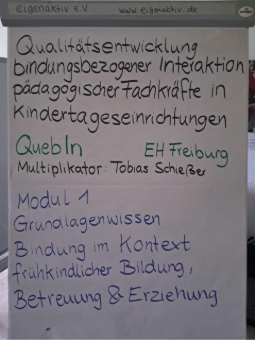 eigenaktiv e.V. www.eigenaktiv.de
Qualitätsentwicklung
bindungsbezogener Interaktion
pädagogischer Fachkräfte in
Kindertageseinrichtungen
QuebIn EH Freiburg
Multiplikator: Tobias Schießer
Modul 1
Grundlagenwissen
Bindung im Kontext
frühkindlicher Bildung,
Betreuung & Erziehung